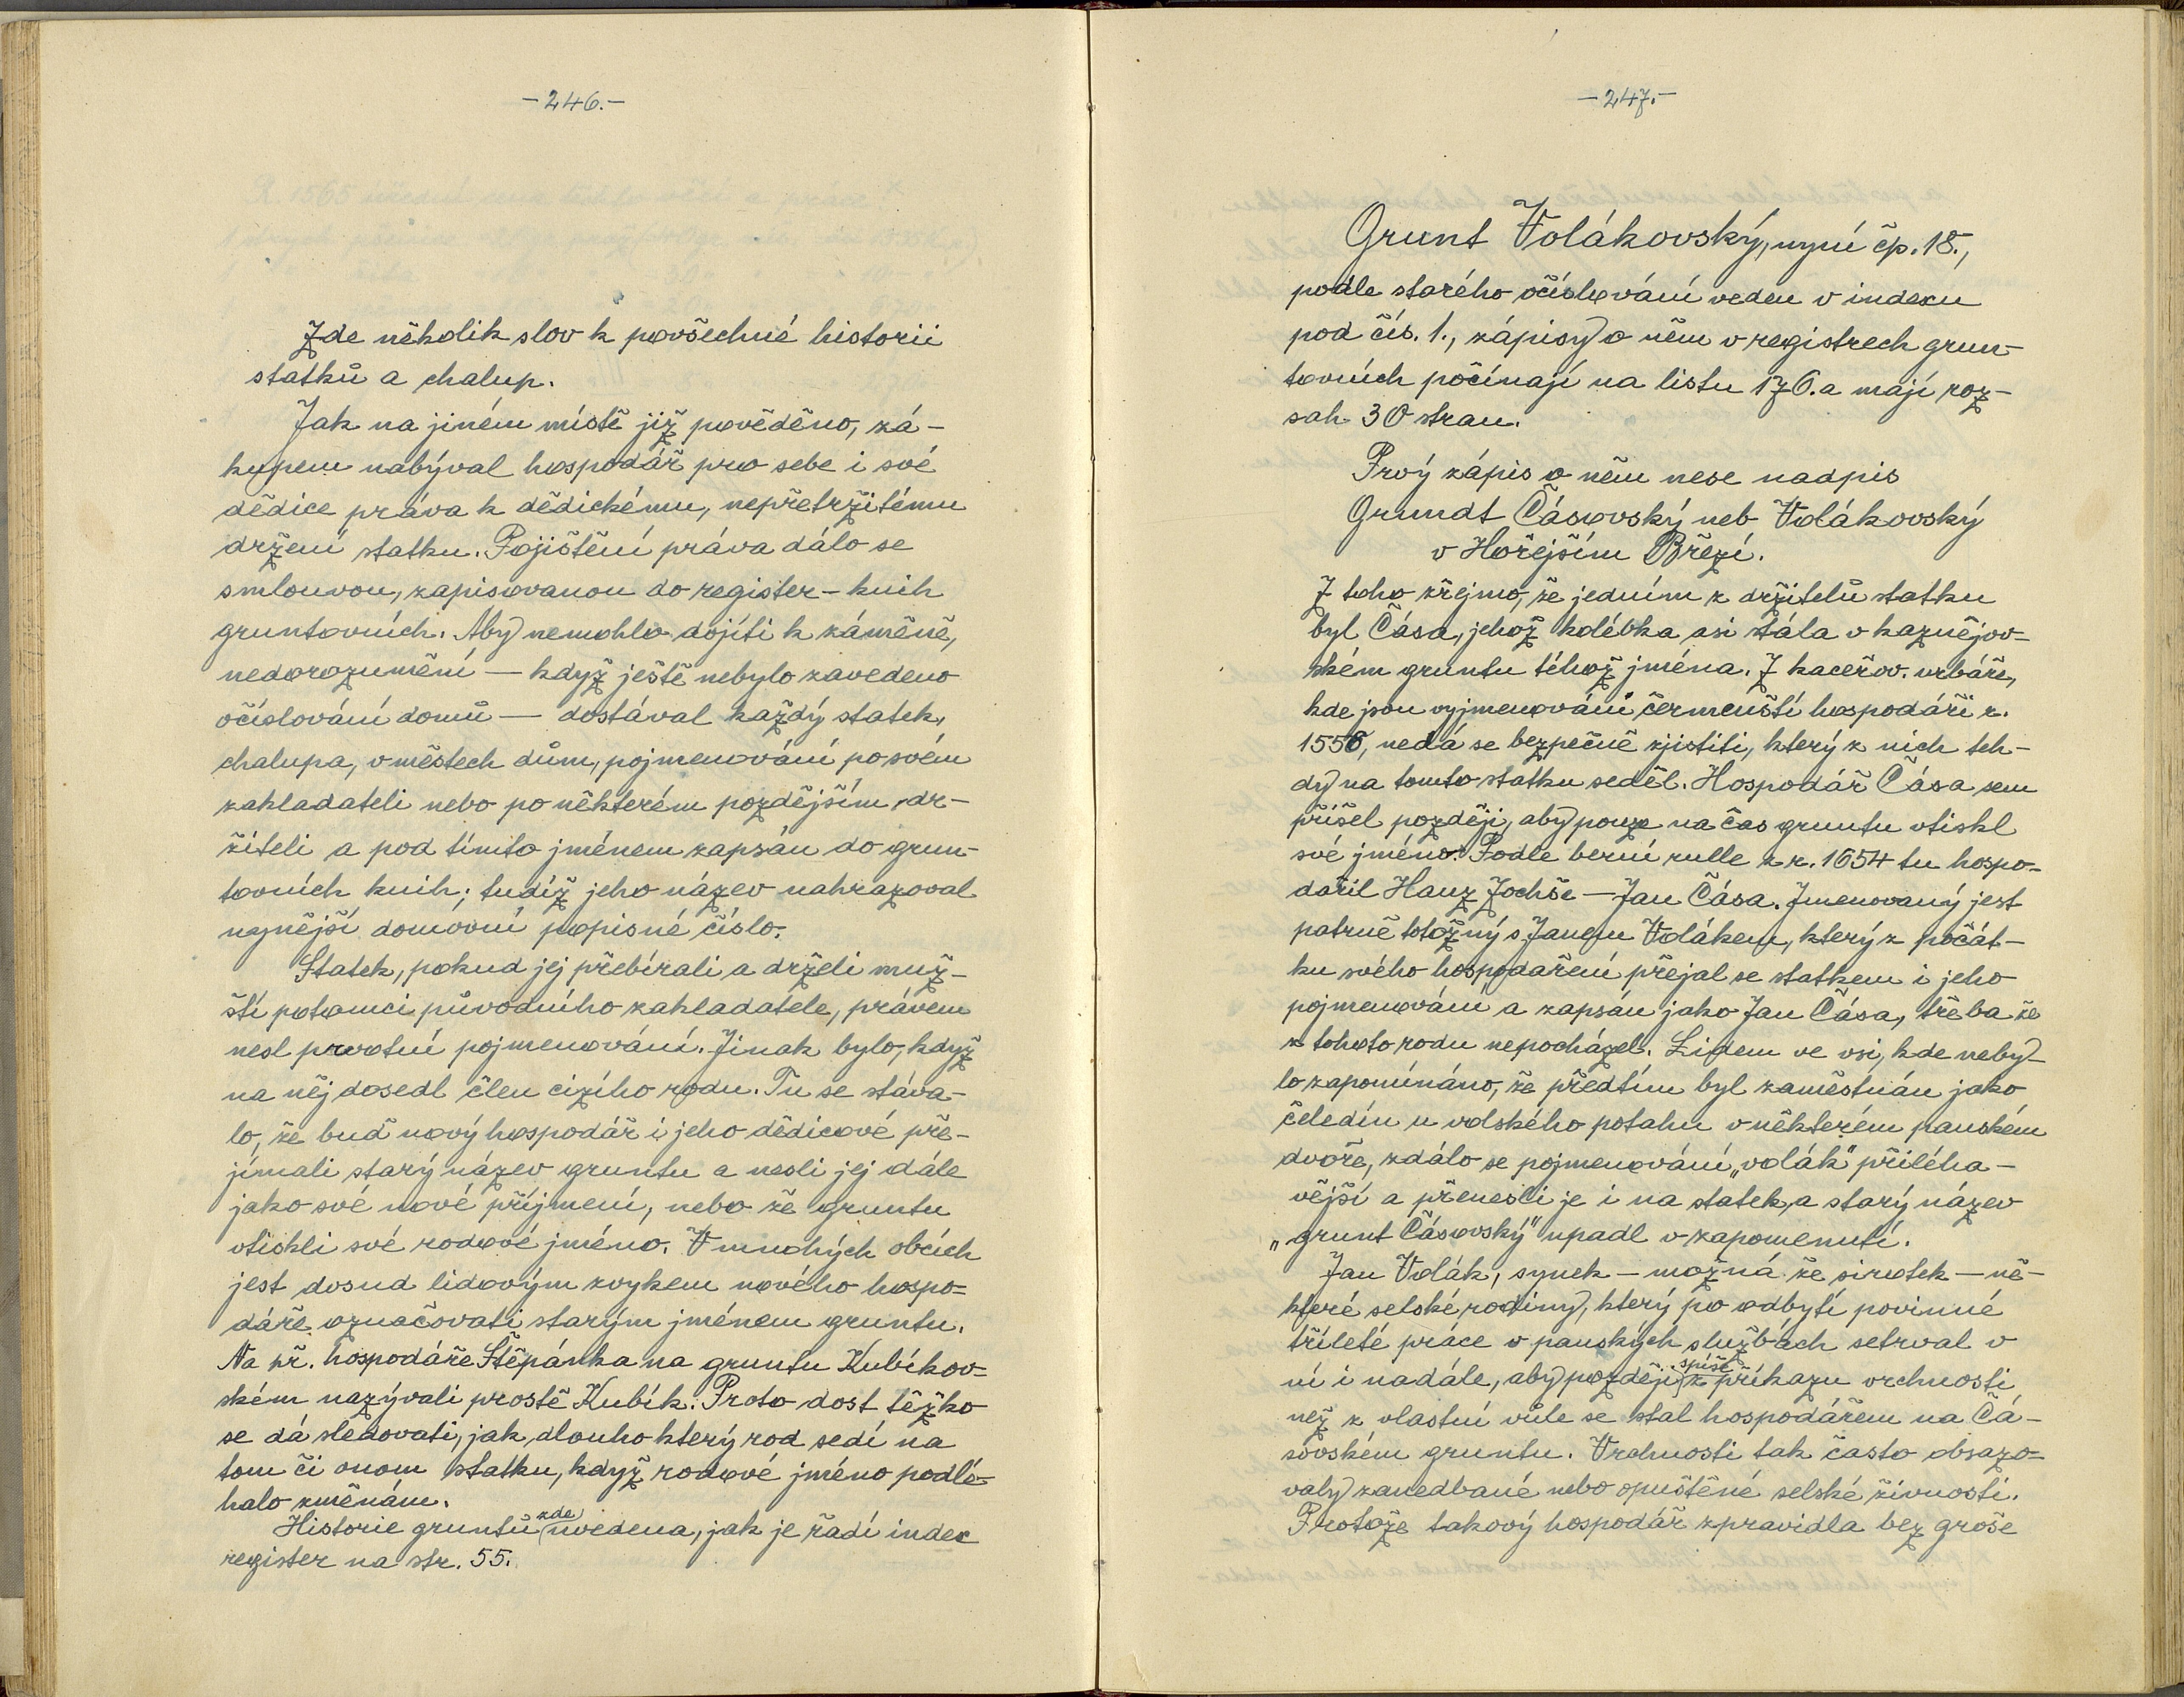 -246.-
Zde několik slov k povšechné historii
statků a chalup.
Jak na jiném místě již pověděno, zá-
kupem nabýval hospodář pro sebe i své
dědice práva k dědickému, nepřetržitému
držení statku. Pojištění práva dálo se
smlouvou, zapisovanou do register - knih
gruntovních. Aby nemohlo dojíti k záměně,
nedorozumění — když ještě nebylo zavedeno
očíslování domů — dostával každý statek,
chalupa, v městech dům, pojmenování po svém
zakladateli nebo po některém pozdějším dr-
žiteli a pod tímto jménem zapsán do grun-
tovních knih; tudíž jeho název nahrazoval
nynější domovní popisné číslo.
Statek, pokud jej přebírali a drželi muž-
ští potomci původního zakladatele, právem
nesl prvotní pojmenování. Jinak bylo, když
na něj dosedl člen cizího rodu. Tu se stáva-
lo, že buď nový hospodář i jeho dědicové pře-
jímali starý název gruntu a nesli jej dále
jako své nové příjmení, nebo že gruntu
vtiskli své rodové jméno. V mnohých obcích
jest dosud lidovým zvykem nového hospo-
dáře označovati starým jménem gruntu.
Na př. hospodáře Štěpánka na gruntu Kubíkov-
ském nazývali prostě Kubík. Proto dost těžko
se dá sledovati, jak dlouho který rod sedí na
tom či onom statku, když rodové jméno podlé-
halo změnám.
Historie gruntů zde uvedena, jak je řadí index
register na str. 55.
-247.-
Grunt Volákovský, nyní čp. 18.,
podle starého očíslování veden v indexu
pod čís. 1., zápisy o něm v registrech grun-
tovních počínají na listu 176. a mají roz-
sah 30 stran.
Prvý zápis o něm nese nadpis
Grundt Čásovský neb Volákovský
v Hořejším Březí.
Z toho zřejmo, že jedním z držitelů statku
byl Čása, jehož kolébka asi stála v kaznějov-
ském gruntu téhož jména. Z kaceřov. urbáře,
kde jsou vyjmenováni čermenští hospodáři r.
1558, nedá se bezpečně zjistiti, který z nich teh-
dy na tomto statku seděl. Hospodář Čása sem
přišel později, aby pouze na čas gruntu vtiskl
své jméno. Podle berní rulle z r. 1654 tu hospo-
dařil Hanz Zochše — Jan Čása. Jmenovaný jest
patrně totožný s Janem Volákem, který z počát-
ku svého hospodaření přejal se statkem i jeho
pojmenování a zapsán jako Jan Čása, třeba že
z tohoto rodu nepocházel. Lidem ve vsi, kde neby-
lo zapomínáno, že předtím byl zaměstnán jako
čeledín u volského potahu v některém panském
dvoře, zdálo se pojmenování „volák" přiléha-
vější a přenesli je i na statek, a starý název
„grunt Čásovský" upadl v zapomenutí.
Jan Volák, synek — možná že sirotek — ně-
které selské rodiny, který po odbytí povinné
tříleté práce v panských službách setrval v
ní i nadále, aby později spíše z příkazu vrchnosti
než z vlastní vůle se stal hospodářem na Čá-
sovském gruntu. Vrchnosti tak často obsazo-
valy zanedbané nebo opuštěné selské živnosti.
Protože takový hospodář zpravidla bez groše